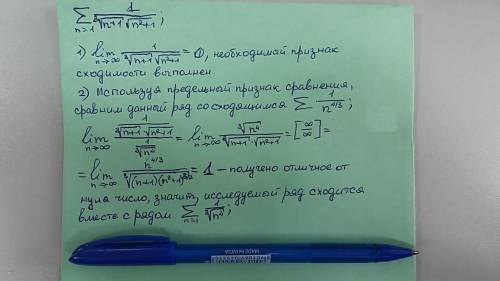 ∑_{n=1} 1/(∛(n+1) √(n²+1));
1) lim_{n→∞} 1/(∛(n+1) √(n²+1)) = 0, необходимый признак
сходимости выполнен.
2) Используя предельный признак сравнения,
сравним данный ряд со сходящимся ∑ 1/n^{4/3};
lim_{n→∞} (1/(∛(n+1)·√(n²+1)))/(1/∛(n⁴)) = lim_{n→∞} ∛(n⁴)/(∛(n+1)·√(n²+1)) = [∞/∞] =
= lim_{n→∞} n^{4/3}/∛((n+1)(n²+1)^{3/2}) = 1 – получено отличное от
нуля число, значит, исследуемый ряд сходится
вместе с рядом ∑_{n=1} 1/∛(n⁴);